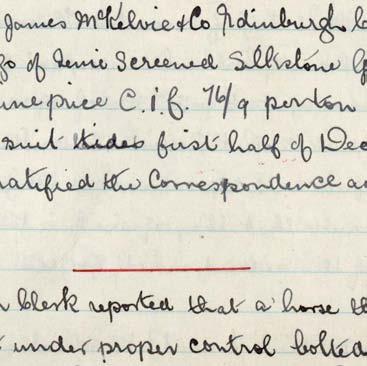 James McKelvie & Co Edinburgh
of Screened Silkstone
price C.i.f. 76/9 per ton
suit tides first half of Dec
ratified the Correspondence
clerk reported that a horse
under proper control bolted